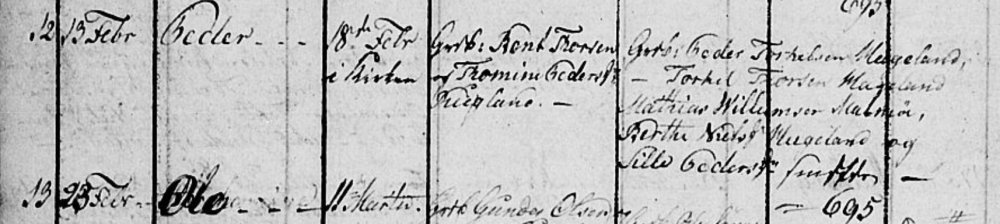 695
12 13 Febr Peder 18de Febr i Kirken
Grdb: Bent Thorsen
og Thomine Pedersd:
Grdb: Peder Torkelsen Mugeland,
— Torkel Torsen Mageland
Mathias Willumsen Malmöe,
Berthe Nielsd: Mugeland og
Sille Pedersd:
13 23 Febr Ole 11 Martii. Grdb Gunder Olsen
— 695